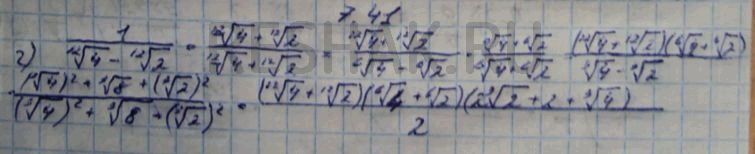 741
2) \frac{1}{\sqrt[12]{4} - \sqrt[12]{2}} \cdot \frac{\sqrt[12]{4} + \sqrt[12]{2}}{\sqrt[12]{4} + \sqrt[12]{2}} = \frac{\sqrt[12]{4} + \sqrt[12]{2}}{\sqrt[6]{4} - \sqrt[6]{2}} \cdot \frac{\sqrt[6]{4} + \sqrt[6]{2}}{\sqrt[6]{4} + \sqrt[6]{2}} = \frac{(\sqrt[12]{4} + \sqrt[12]{2})(\sqrt[6]{4} + \sqrt[6]{2})}{\sqrt[3]{4} - \sqrt[3]{2}}
\cdot \frac{(\sqrt[3]{4})^2 + \sqrt[3]{8} + (\sqrt[3]{2})^2}{(\sqrt[3]{4})^2 + \sqrt[3]{8} + (\sqrt[3]{2})^2} = \frac{(\sqrt[12]{4} + \sqrt[12]{2})(\sqrt[6]{4} + \sqrt[6]{2})(2\sqrt[3]{2} + 2 + \sqrt[3]{4})}{2}